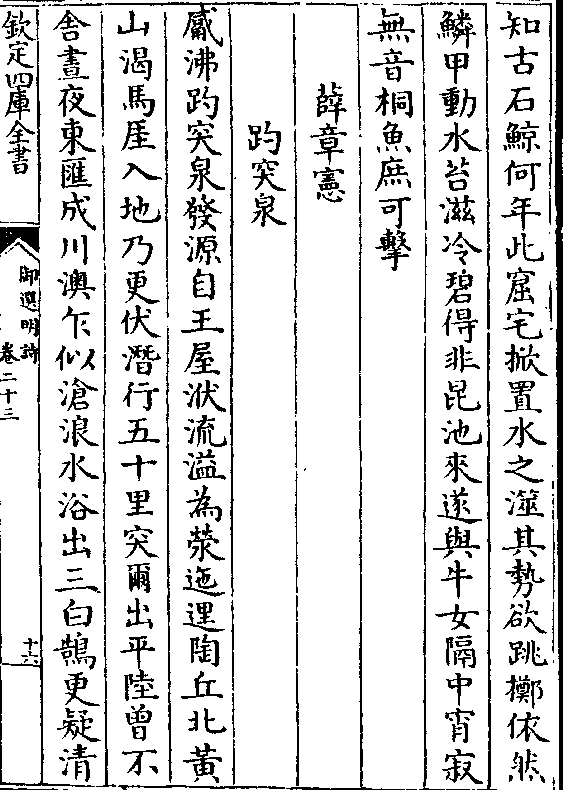 知古石鯨何年此窟宅掀置水之澨其勢欲跳擲依然
鱗甲動水苔滋冷碧得非昆池來遂與牛女隔中宵寂
無音桐魚庶可擊
薛章憲
趵突泉
觱沸趵突泉發源自王屋洑流溢為滎迤逦陶丘北黃
山渴馬厓入地乃更伏潛行五十里突爾出平陸曾不
舍晝夜東匯成川澳乍似滄浪水浴出三白鵠更疑清
欽定四庫全書
御選明詩
卷二十三
十六